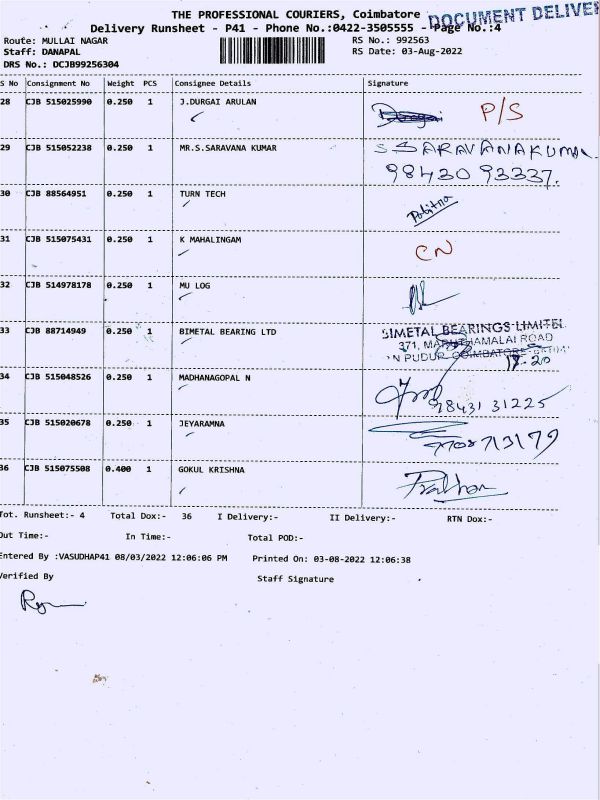 THE PROFESSIONAL COURIERS, Coimbatore
DOCUMENT DELIVE
Delivery Runsheet - P41 - Phone No.:0422-3505555 - Page No.:4
Route: MULLAI NAGAR RS No.: 992563
Staff: DANAPAL RS Date: 03-Aug-2022
DRS No.: DCJB99256304
S No Consignment No Weight PCS Consignee Details Signature
28 CJB 515025990 0.250 1 J.DURGAI ARULAN P/S
29 CJB 515052238 0.250 1 MR.S.SARAVANA KUMAR S SARAVANAKUMA
98430 93337.
30 CJB 88564951 0.250 1 TURN TECH
31 CJB 515075431 0.250 1 K MAHALINGAM CN
32 CJB 514978178 0.250 1 MU LOG
33 CJB 88714949 0.250 1 BIMETAL BEARING LTD BIMETAL BEARINGS LIMITE
371, MARUTHAMALAI ROAD
N PUDUR COIMBATORE
34 CJB 515048526 0.250 1 MADHANAGOPAL N
98431 31225
35 CJB 515020678 0.250 1 JEYARAMNA
7708713179
36 CJB 515075508 0.400 1 GOKUL KRISHNA
Tot. Runsheet:- 4 Total Dox:- 36 I Delivery:- II Delivery:- RTN Dox:-
Out Time:- In Time:- Total POD:-
Entered By :VASUDHAP41 08/03/2022 12:06:06 PM Printed On: 03-08-2022 12:06:38
Verified By Staff Signature